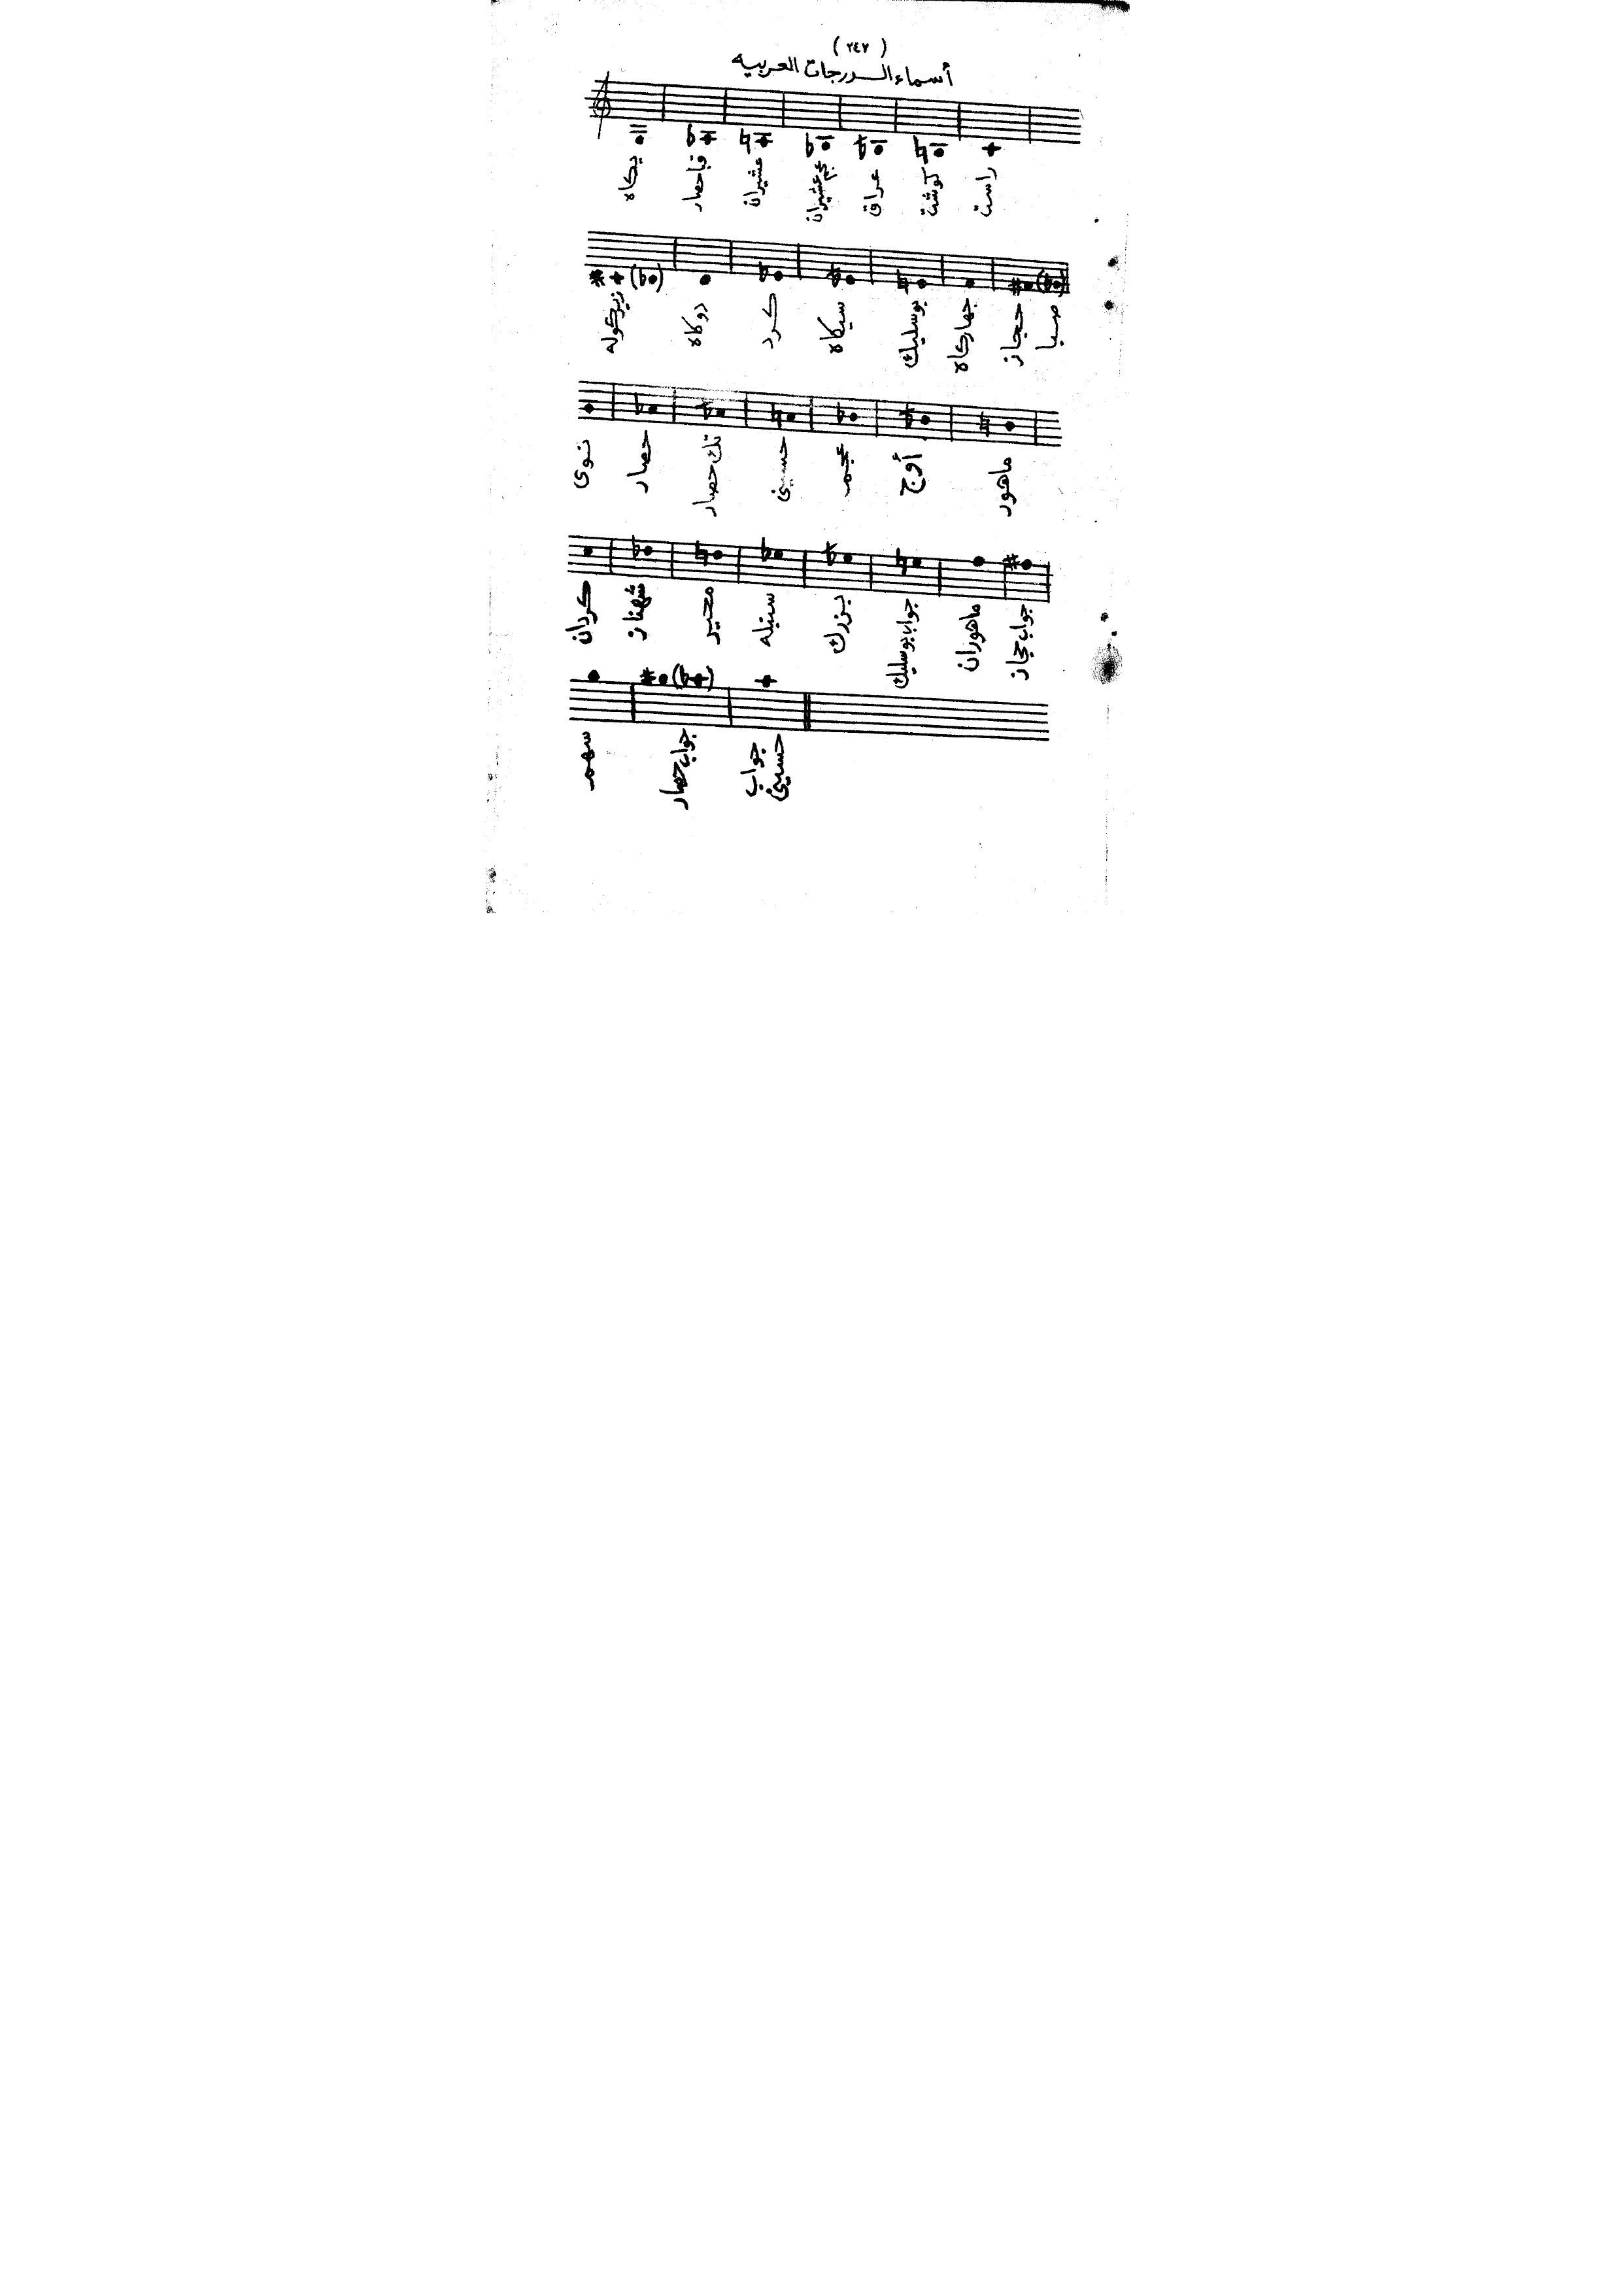 ( ٢٤٧ )
أسماء الدرجات العربيه
يكاه
قبا حصار
عشيران
عجم عشيران
عراق
كوشت
راست
زيركوله
دوكاه
كرد
سيكاه
بوسليك
جهاركاه
حجاز
صبا
نوى
حصار
تك حصار
حسينى
عجم
أوج
ماهور
كردان
شهناز
محير
سنبله
بزرك
جواب بوسليك
ماهوران
جواب حجاز
سهم
جواب حصار
جواب
حسينى